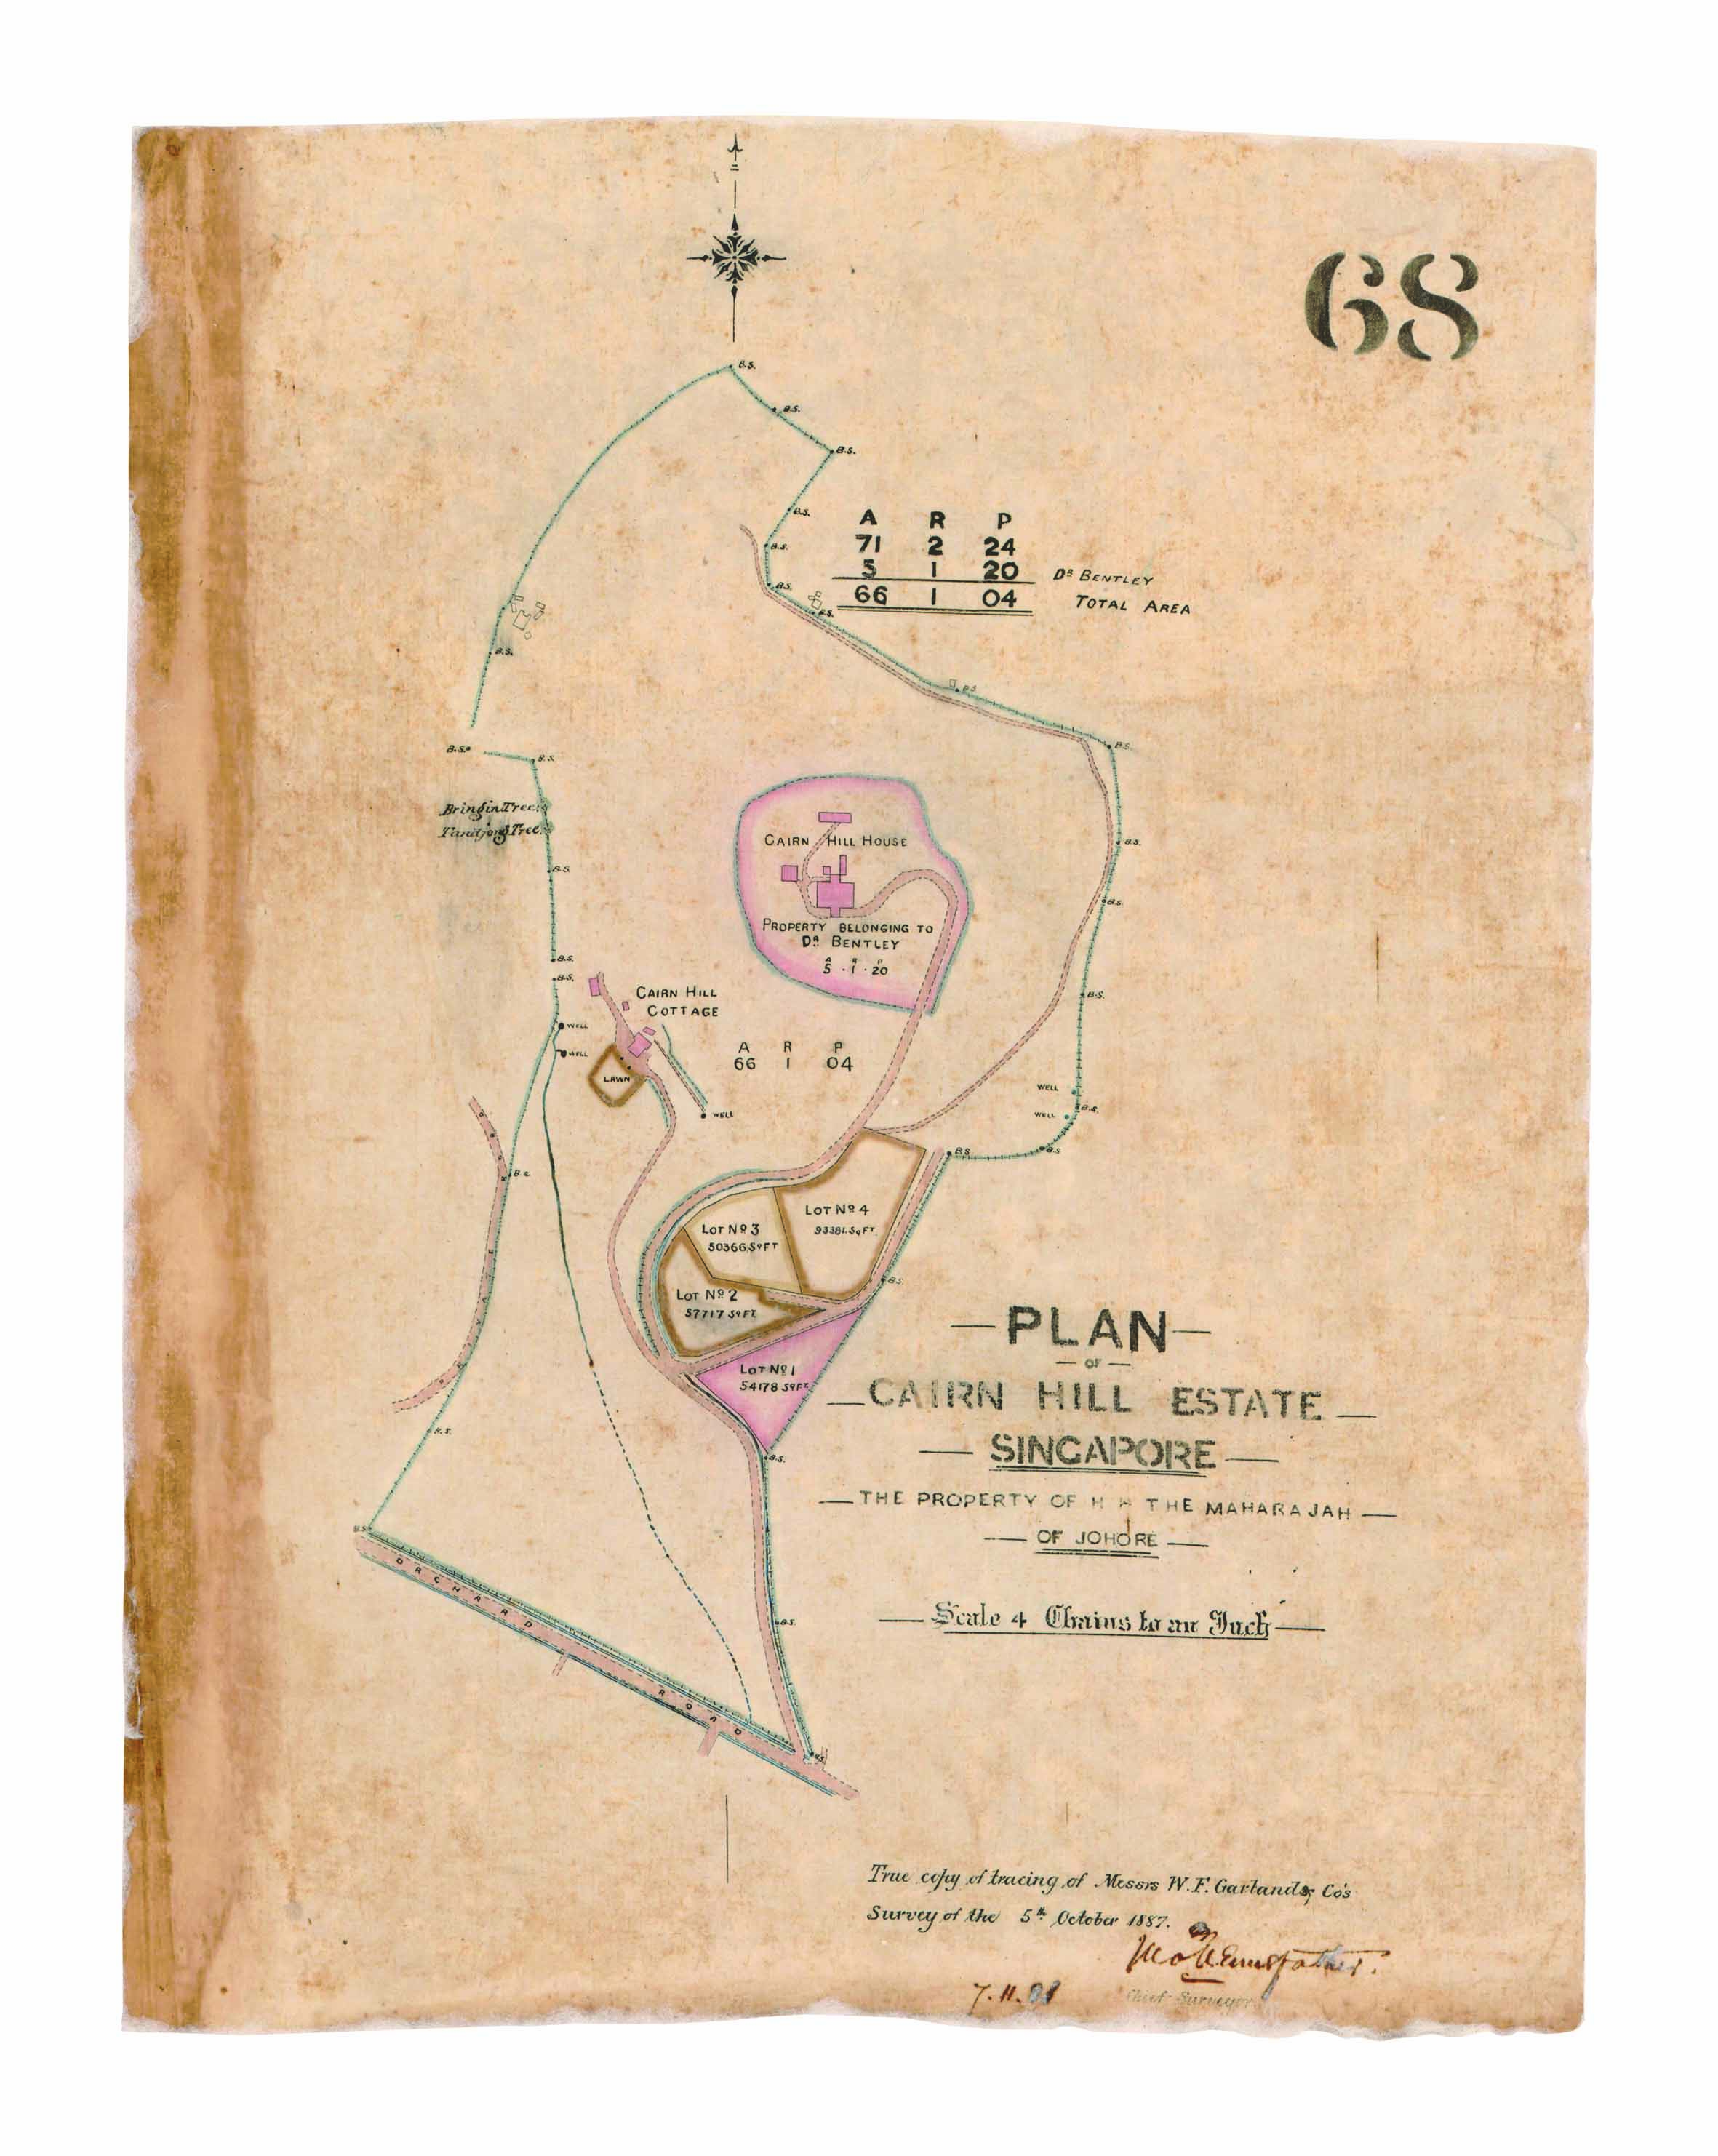 68
B.S.
B.S.
B.S.
B.S.
B.S.
B.S.
B.S.
A R P
71 2 24
5 1 20 DR BENTLEY
66 1 04 TOTAL AREA
B.S.
B.S.
B.S.
B.S.
B.S.
Bringin Tree
Tandjong Tree
B.S.
B.S.
B.S.
CAIRN HILL HOUSE
PROPERTY BELONGING TO
DR BENTLEY
A R P
5 . 1 . 20
B.S.
B.S.
B.S.
CAIRN HILL
COTTAGE
WELL
WELL
LAWN
A R P
66 1 04
WELL
WELL
WELL
B.S.
B.S.
B.S.
B.S.
LOT No 4
93381. Sq FT
LOT No 3
50366 Sq FT
LOT No 2
57717 Sq FT
B.S.
LOT No 1
54178 Sq FT
B.S.
B.S.
B.S.
ORCHARD ROAD
B.S.
B.S.
— PLAN —
— OF —
— CAIRN HILL ESTATE —
— SINGAPORE —
— THE PROPERTY OF H H THE MAHARAJAH —
— OF JOHORE —
— Scale 4 Chains to an Inch —
True copy of tracing of Messrs W. F. Garland & Co's
Survey of the 5th October 1887.
Chief Surveyor